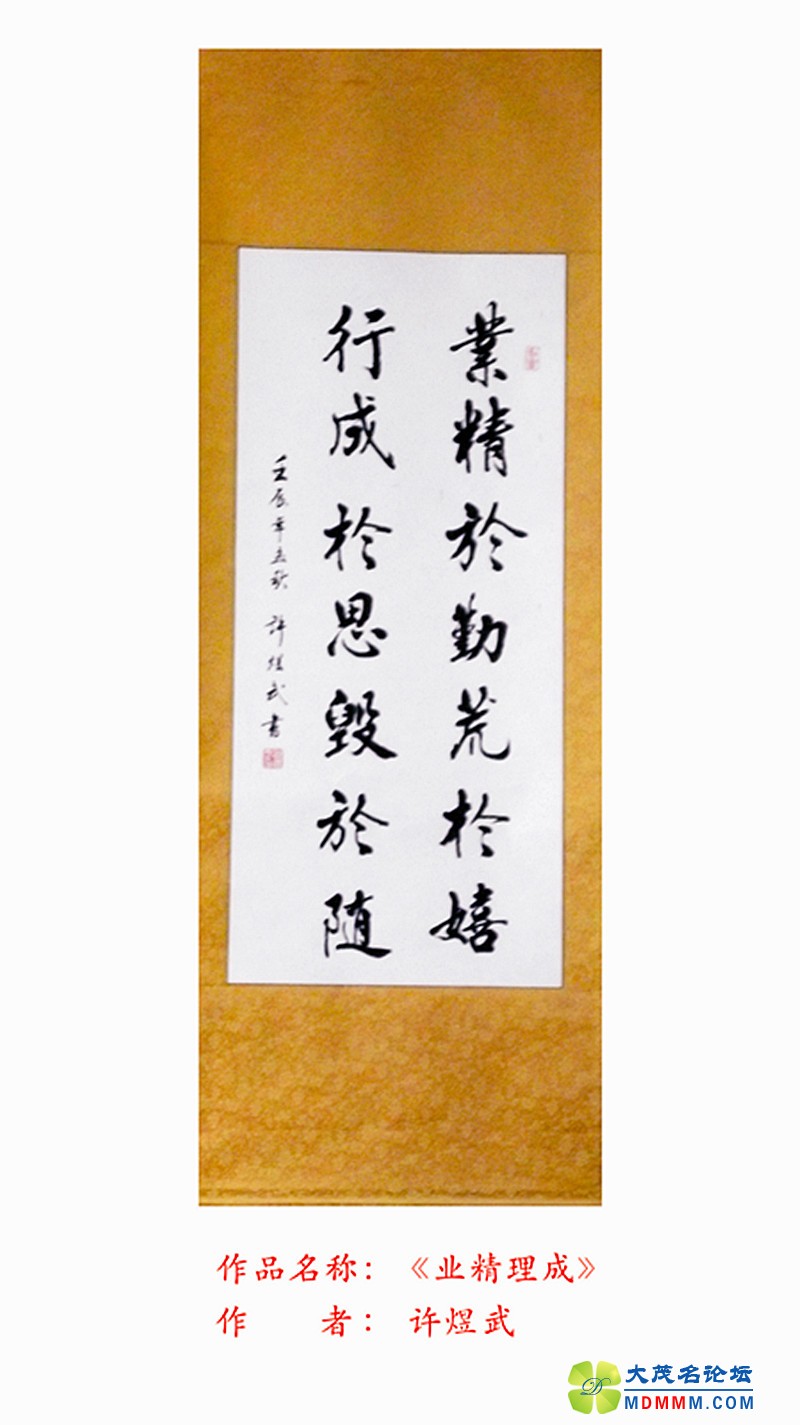 業精於勤荒於嬉
行成於思毀於随
壬辰年立秋 許煜武書
作品名称：《业精理成》
作 者：许煜武
大茂名论坛
MDMMM.COM